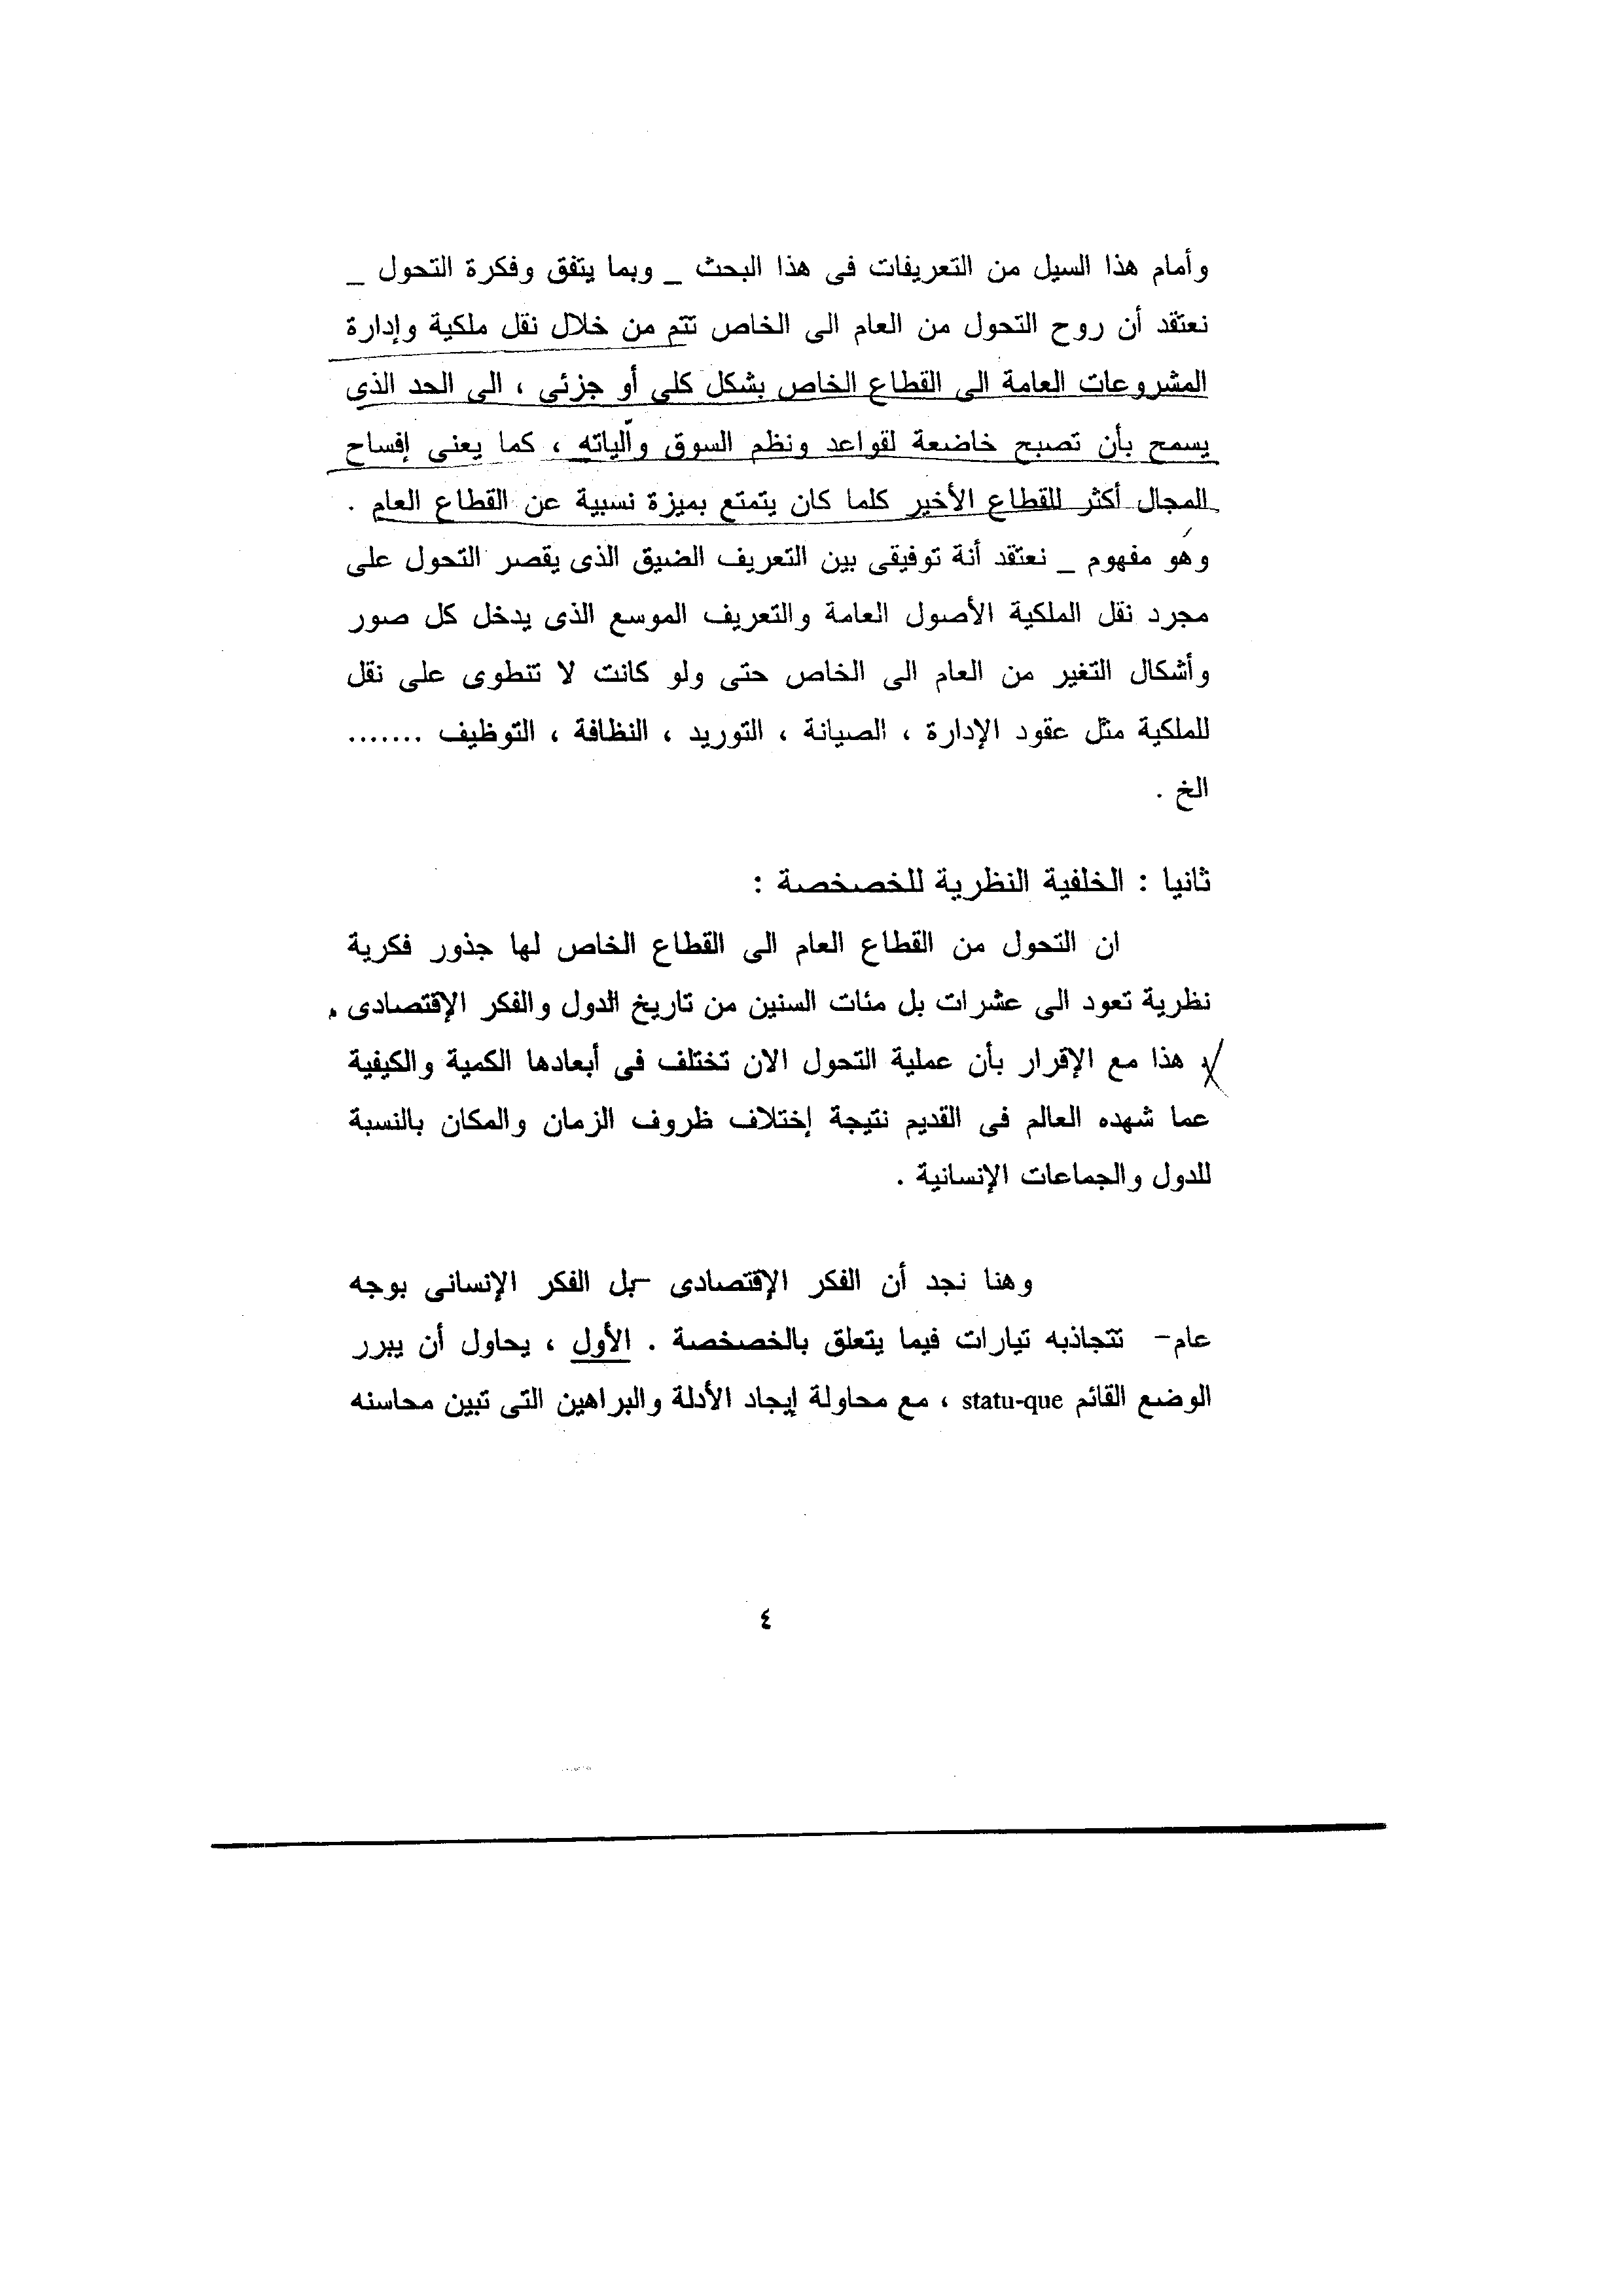 وأمام هذا السيل من التعريفات فى هذا البحث _ وبما يتفق وفكرة التحول _
نعتقد أن روح التحول من العام الى الخاص تتم من خلال نقل ملكية وإدارة
المشروعات العامة الى القطاع الخاص بشكل كلى أو جزئى ، الى الحد الذى
يسمح بأن تصبح خاضعة لقواعد ونظم السوق وآلياته ، كما يعنى إفساح
المجال أكثر للقطاع الأخير كلما كان يتمتع بميزة نسبية عن القطاع العام .
وهو مفهوم _ نعتقد أنة توفيقى بين التعريف الضيق الذى يقصر التحول على
مجرد نقل الملكية الأصول العامة والتعريف الموسع الذى يدخل كل صور
وأشكال التغير من العام الى الخاص حتى ولو كانت لا تنطوى على نقل
للملكية مثل عقود الإدارة ، الصيانة ، التوريد ، النظافة ، التوظيف .......
الخ .
ثانيا : الخلفية النظرية للخصخصة :
ان التحول من القطاع العام الى القطاع الخاص لها جذور فكرية
نظرية تعود الى عشرات بل مئات السنين من تاريخ الدول والفكر الإقتصادى .
، هذا مع الإقرار بأن عملية التحول الان تختلف فى أبعادها الكمية والكيفية
عما شهده العالم فى القديم نتيجة إختلاف ظروف الزمان والمكان بالنسبة
للدول والجماعات الإنسانية .
وهنا نجد أن الفكر الإقتصادى -بل الفكر الإنسانى بوجه
عام- تتجاذبه تيارات فيما يتعلق بالخصخصة . الأول ، يحاول أن يبرر
الوضع القائم statu-que ، مع محاولة إيجاد الأدلة والبراهين التى تبين محاسنه
٤